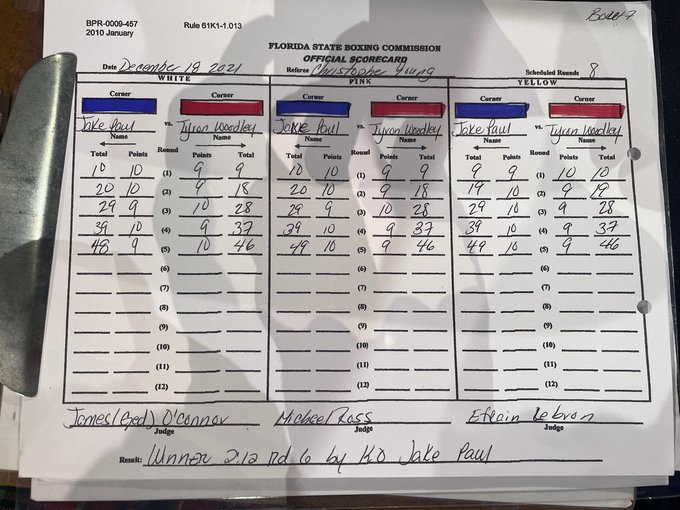 BPR-0009-457 Rule 61K1-1.013
2010 January
Bout 7
FLORIDA STATE BOXING COMMISSION
OFFICIAL SCORECARD
Date December 18 2021 Referee Christopher Young Scheduled Rounds 8
WHITE PINK YELLOW
Corner Corner Corner Corner Corner Corner
Jake Paul vs. Tyron Woodley Jake Paul vs. Tyron Woodley Jake Paul vs. Tyron Woodley
Name Name Name Name Name Name
Total Points Round Points Total Total Points Round Points Total Total Points Round Points Total
10 10 (1) 9 9 10 10 (1) 9 9 9 9 (1) 10 10
20 10 (2) 9 18 20 10 (2) 9 18 19 10 (2) 9 19
29 9 (3) 10 28 29 9 (3) 10 28 29 10 (3) 9 28
39 10 (4) 9 37 39 10 (4) 9 37 39 10 (4) 9 37
48 9 (5) 10 46 49 10 (5) 9 46 49 10 (5) 9 46
(6) (6) (6)
(7) (7) (7)
(8) (8) (8)
(9) (9) (9)
(10) (10) (10)
(11) (11) (11)
(12) (12) (12)
James (Ged) O'Connor Michael Ross Efrain Lebron
Judge Judge Judge
Result: Winner 2:12 rd 6 by KO Jake Paul